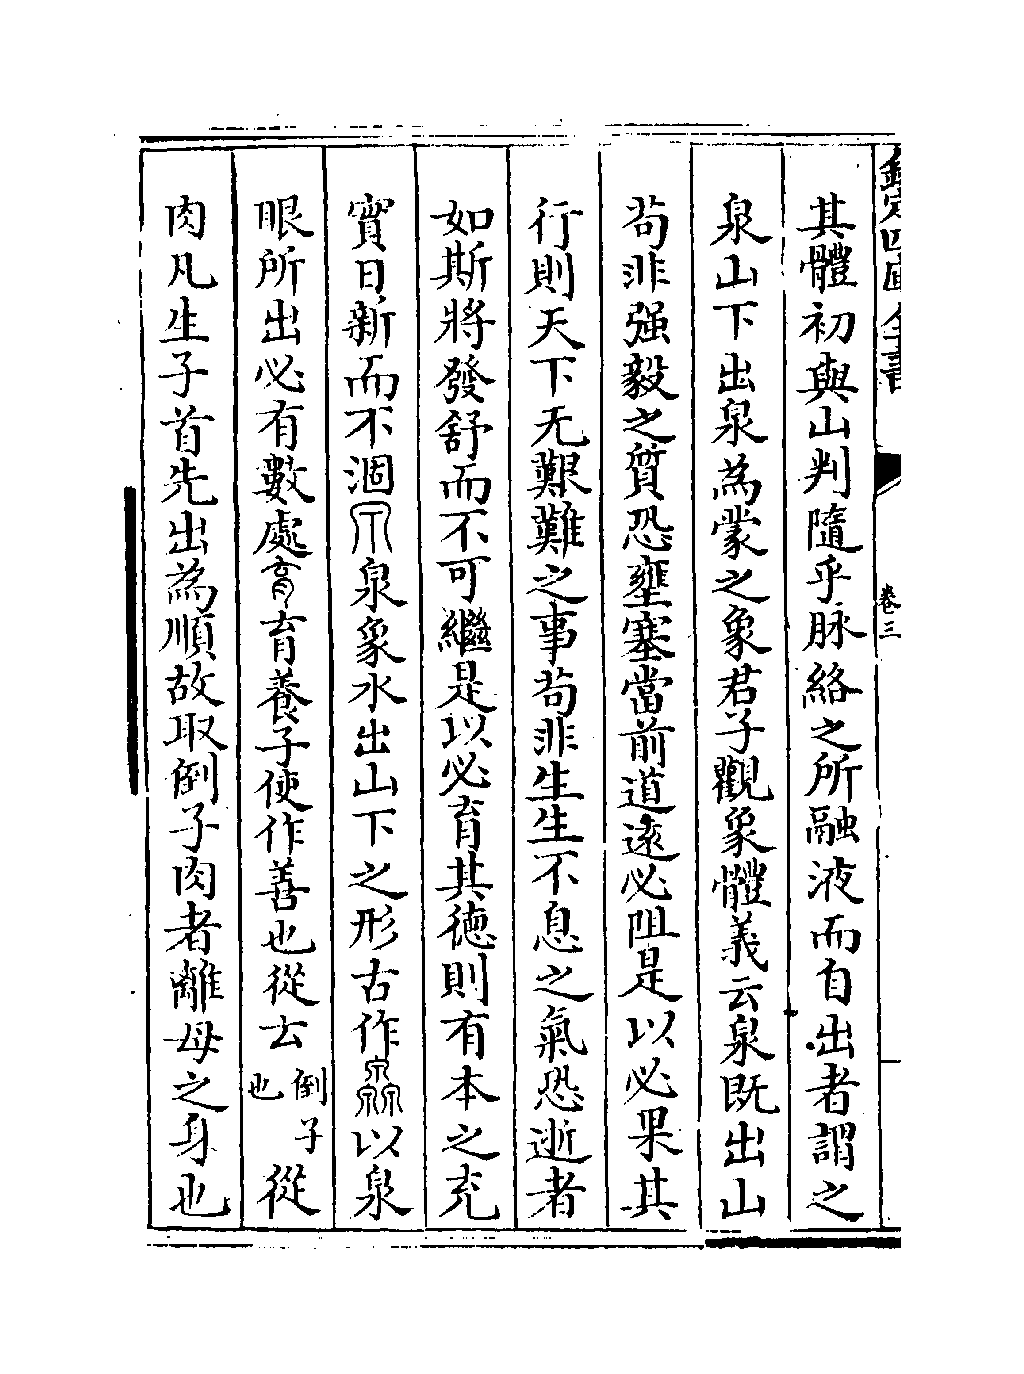 欽定四庫全書
卷三
其體初與山判隨乎脉絡之所融液而自出者謂之
泉山下出泉為蒙之象君子觀象體義云泉既出山
苟非强毅之質恐壅塞當前道遠必阻是以必果其
行則天下无艱難之事苟非生生不息之氣恐逝者
如斯將發舒而不可繼是以必育其德則有本之充
實日新而不涸泉象水出山下之形古作以泉
眼所出必有數處育養子使作善也從𠫓倒子也從
肉凡生子首先出為順故取倒子肉者離母之身也